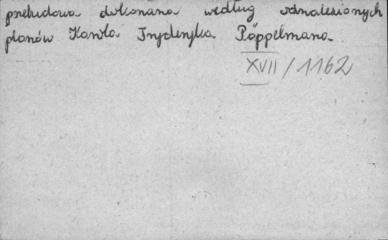 przebudowa dokonana według odnalezionych
planów Karola Fryderyka Pöppelmana.
XVII/1162